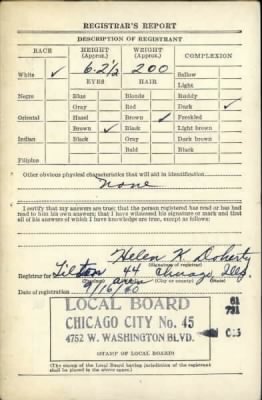 REGISTRAR'S REPORT
DESCRIPTION OF REGISTRANT
RACE HEIGHT (Approx.) WEIGHT (Approx.) COMPLEXION
White ✓ 6-2½ 200 Sallow
EYES HAIR Light
Negro Blue Blonde Ruddy
Gray Red Dark ✓
Oriental Hazel Brown ✓ Freckled
Brown ✓ Black Light brown
Indian Black Gray Dark brown
Bald Black
Filipino
Other obvious physical characteristics that will aid in identification
None
I certify that my answers are true; that the person registered has read or has had
read to him his own answers; that I have witnessed his signature or mark and that
all of his answers of which I have knowledge are true, except as follows:
Helen K Doherty
(Signature of registrar)
Registrar for Tilton 44 Chicago Ill.
(Precinct) (City or county) (State)
Date of registration 10/16/40
LOCAL BOARD 61
CHICAGO CITY No. 45
4752 W. WASHINGTON BLVD.
(STAMP OF LOCAL BOARD)
(The stamp of the Local Board having jurisdiction of the registrant
shall be placed in the above space.)